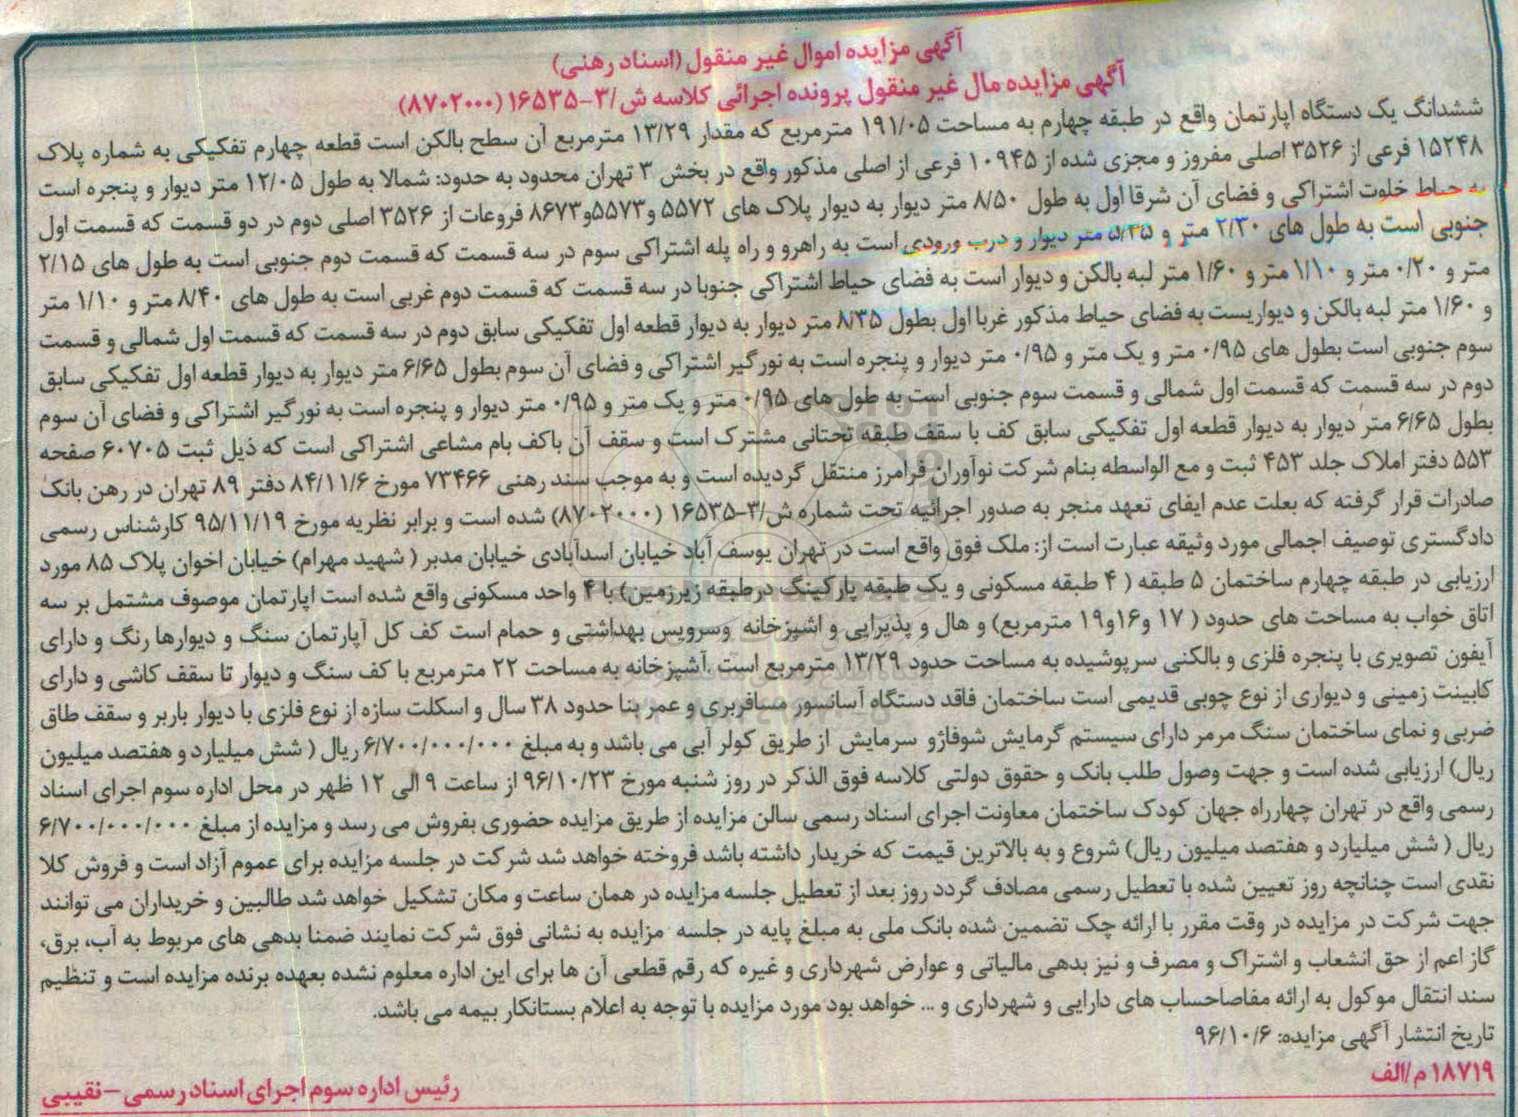 آگهی مزایده اموال غیر منقول (اسناد رهنی)
آگهی مزایده مال غیر منقول پرونده اجرائی کلاسه ش/۳-۱۶۵۳۵ (۸۷۰۲۰۰۰)
ششدانگ یک دستگاه اپارتمان واقع در طبقه چهارم به مساحت ۱۹۱/۰۵ مترمربع که مقدار ۱۳/۲۹ مترمربع آن سطح بالکن است قطعه چهارم تفکیکی به شماره پلاک
۱۵۲۴۸ فرعی از ۳۵۲۶ اصلی مفروز و مجزی شده از ۱۰۹۴۵ فرعی از اصلی مذکور واقع در بخش ۳ تهران محدود به حدود: شمالا به طول ۱۲/۰۵ متر دیوار و پنجره است
به حیاط خلوت اشتراکی و فضای آن شرقا اول به طول ۸/۵۰ متر دیوار به دیوار پلاک های ۵۵۷۲ و۵۵۷۳و۸۶۷۳ فروعات از ۳۵۲۶ اصلی دوم در دو قسمت که قسمت اول
جنوبی است به طول های ۲/۳۰ متر و ۵/۳۵ متر دیوار و درب ورودی است به راهرو و راه پله اشتراکی سوم در سه قسمت که قسمت دوم جنوبی است به طول های ۲/۱۵
متر و ۰/۲۰ متر و ۱/۱۰ متر و ۱/۶۰ متر لبه بالکن و دیوار است به فضای حیاط اشتراکی جنوبا در سه قسمت که قسمت دوم غربی است به طول های ۸/۴۰ متر و ۱/۱۰ متر
و ۱/۶۰ متر لبه بالکن و دیواریست به فضای حیاط مذکور غربا اول بطول ۸/۳۵ متر دیوار به دیوار قطعه اول تفکیکی سابق دوم در سه قسمت که قسمت اول شمالی و قسمت
سوم جنوبی است بطول های ۰/۹۵ متر و یک متر و ۰/۹۵ متر دیوار و پنجره است به نورگیر اشتراکی و فضای آن سوم بطول ۶/۶۵ متر دیوار به دیوار قطعه اول تفکیکی سابق
دوم در سه قسمت که قسمت اول شمالی و قسمت سوم جنوبی است به طول های ۰/۹۵ متر و یک متر و ۰/۹۵ متر دیوار و پنجره است به نورگیر اشتراکی و فضای آن سوم
بطول ۶/۶۵ متر دیوار به دیوار قطعه اول تفکیکی سابق کف با سقف طبقه تحتانی مشترک است و سقف آن باکف بام مشاعی اشتراکی است که ذیل ثبت ۶۰۷۰۵ صفحه
۵۵۳ دفتر املاک جلد ۴۵۳ ثبت و مع الواسطه بنام شرکت نوآوران فرامرز منتقل گردیده است و به موجب سند رهنی ۷۳۴۶۶ مورخ ۸۴/۱۱/۶ دفتر ۸۹ تهران در رهن بانک
صادرات قرار گرفته که بعلت عدم ایفای تعهد منجر به صدور اجرائیه تحت شماره ش/۳-۱۶۵۳۵ (۸۷۰۲۰۰۰) شده است و برابر نظریه مورخ ۹۵/۱۱/۱۹ کارشناس رسمی
دادگستری توصیف اجمالی مورد وثیقه عبارت است از: ملک فوق واقع است در تهران یوسف آباد خیابان اسدآبادی خیابان مدبر ( شهید مهرام) خیابان اخوان پلاک ۸۵ مورد
ارزیابی در طبقه چهارم ساختمان ۵ طبقه ( ۴ طبقه مسکونی و یک طبقه پارکینگ درطبقه زیرزمین) با ۴ واحد مسکونی واقع شده است اپارتمان موصوف مشتمل بر سه
اتاق خواب به مساحت های حدود ( ۱۷ و۱۶و۱۹ مترمربع) و هال و پذیرایی و اشپزخانه وسرویس بهداشتی و حمام است کف کل آپارتمان سنگ و دیوارها رنگ و دارای
آیفون تصویری با پنجره فلزی و بالکنی سرپوشیده به مساحت حدود ۱۳/۲۹ مترمربع است .آشپزخانه به مساحت ۲۲ مترمربع با کف سنگ و دیوار تا سقف کاشی و دارای
کابینت زمینی و دیواری از نوع چوبی قدیمی است ساختمان فاقد دستگاه آسانسور مسافربری و عمر بنا حدود ۳۸ سال و اسکلت سازه از نوع فلزی با دیوار باربر و سقف طاق
ضربی و نمای ساختمان سنگ مرمر دارای سیستم گرمایش شوفاژو سرمایش از طریق کولر آبی می باشد و به مبلغ ۶/۷۰۰/۰۰۰/۰۰۰ ریال ( شش میلیارد و هفتصد میلیون
ریال) ارزیابی شده است و جهت وصول طلب بانک و حقوق دولتی کلاسه فوق الذکر در روز شنبه مورخ ۹۶/۱۰/۲۳ از ساعت ۹ الی ۱۲ ظهر در محل اداره سوم اجرای اسناد
رسمی واقع در تهران چهارراه جهان کودک ساختمان معاونت اجرای اسناد رسمی سالن مزایده از طریق مزایده حضوری بفروش می رسد و مزایده از مبلغ ۶/۷۰۰/۰۰۰/۰۰۰
ریال ( شش میلیارد و هفتصد میلیون ریال) شروع و به بالاترین قیمت که خریدار داشته باشد فروخته خواهد شد شرکت در جلسه مزایده برای عموم آزاد است و فروش کلا
نقدی است چنانچه روز تعیین شده با تعطیل رسمی مصادف گردد روز بعد از تعطیل جلسه مزایده در همان ساعت و مکان تشکیل خواهد شد طالبین و خریداران می توانند
جهت شرکت در مزایده در وقت مقرر با ارائه چک تضمین شده بانک ملی به مبلغ پایه در جلسه مزایده به نشانی فوق شرکت نمایند ضمنا بدهی های مربوط به آب، برق،
گاز اعم از حق انشعاب و اشتراک و مصرف و نیز بدهی مالیاتی و عوارض شهرداری و غیره که رقم قطعی آن ها برای این اداره معلوم نشده بعهده برنده مزایده است و تنظیم
سند انتقال موکول به ارائه مفاصاحساب های دارایی و شهرداری و ... خواهد بود مورد مزایده با توجه به اعلام بستانکار بیمه می باشد.
تاریخ انتشار آگهی مزایده: ۹۶/۱۰/۶
۱۸۷۱۹ م/الف
رئیس اداره سوم اجرای اسناد رسمی - نقیبی